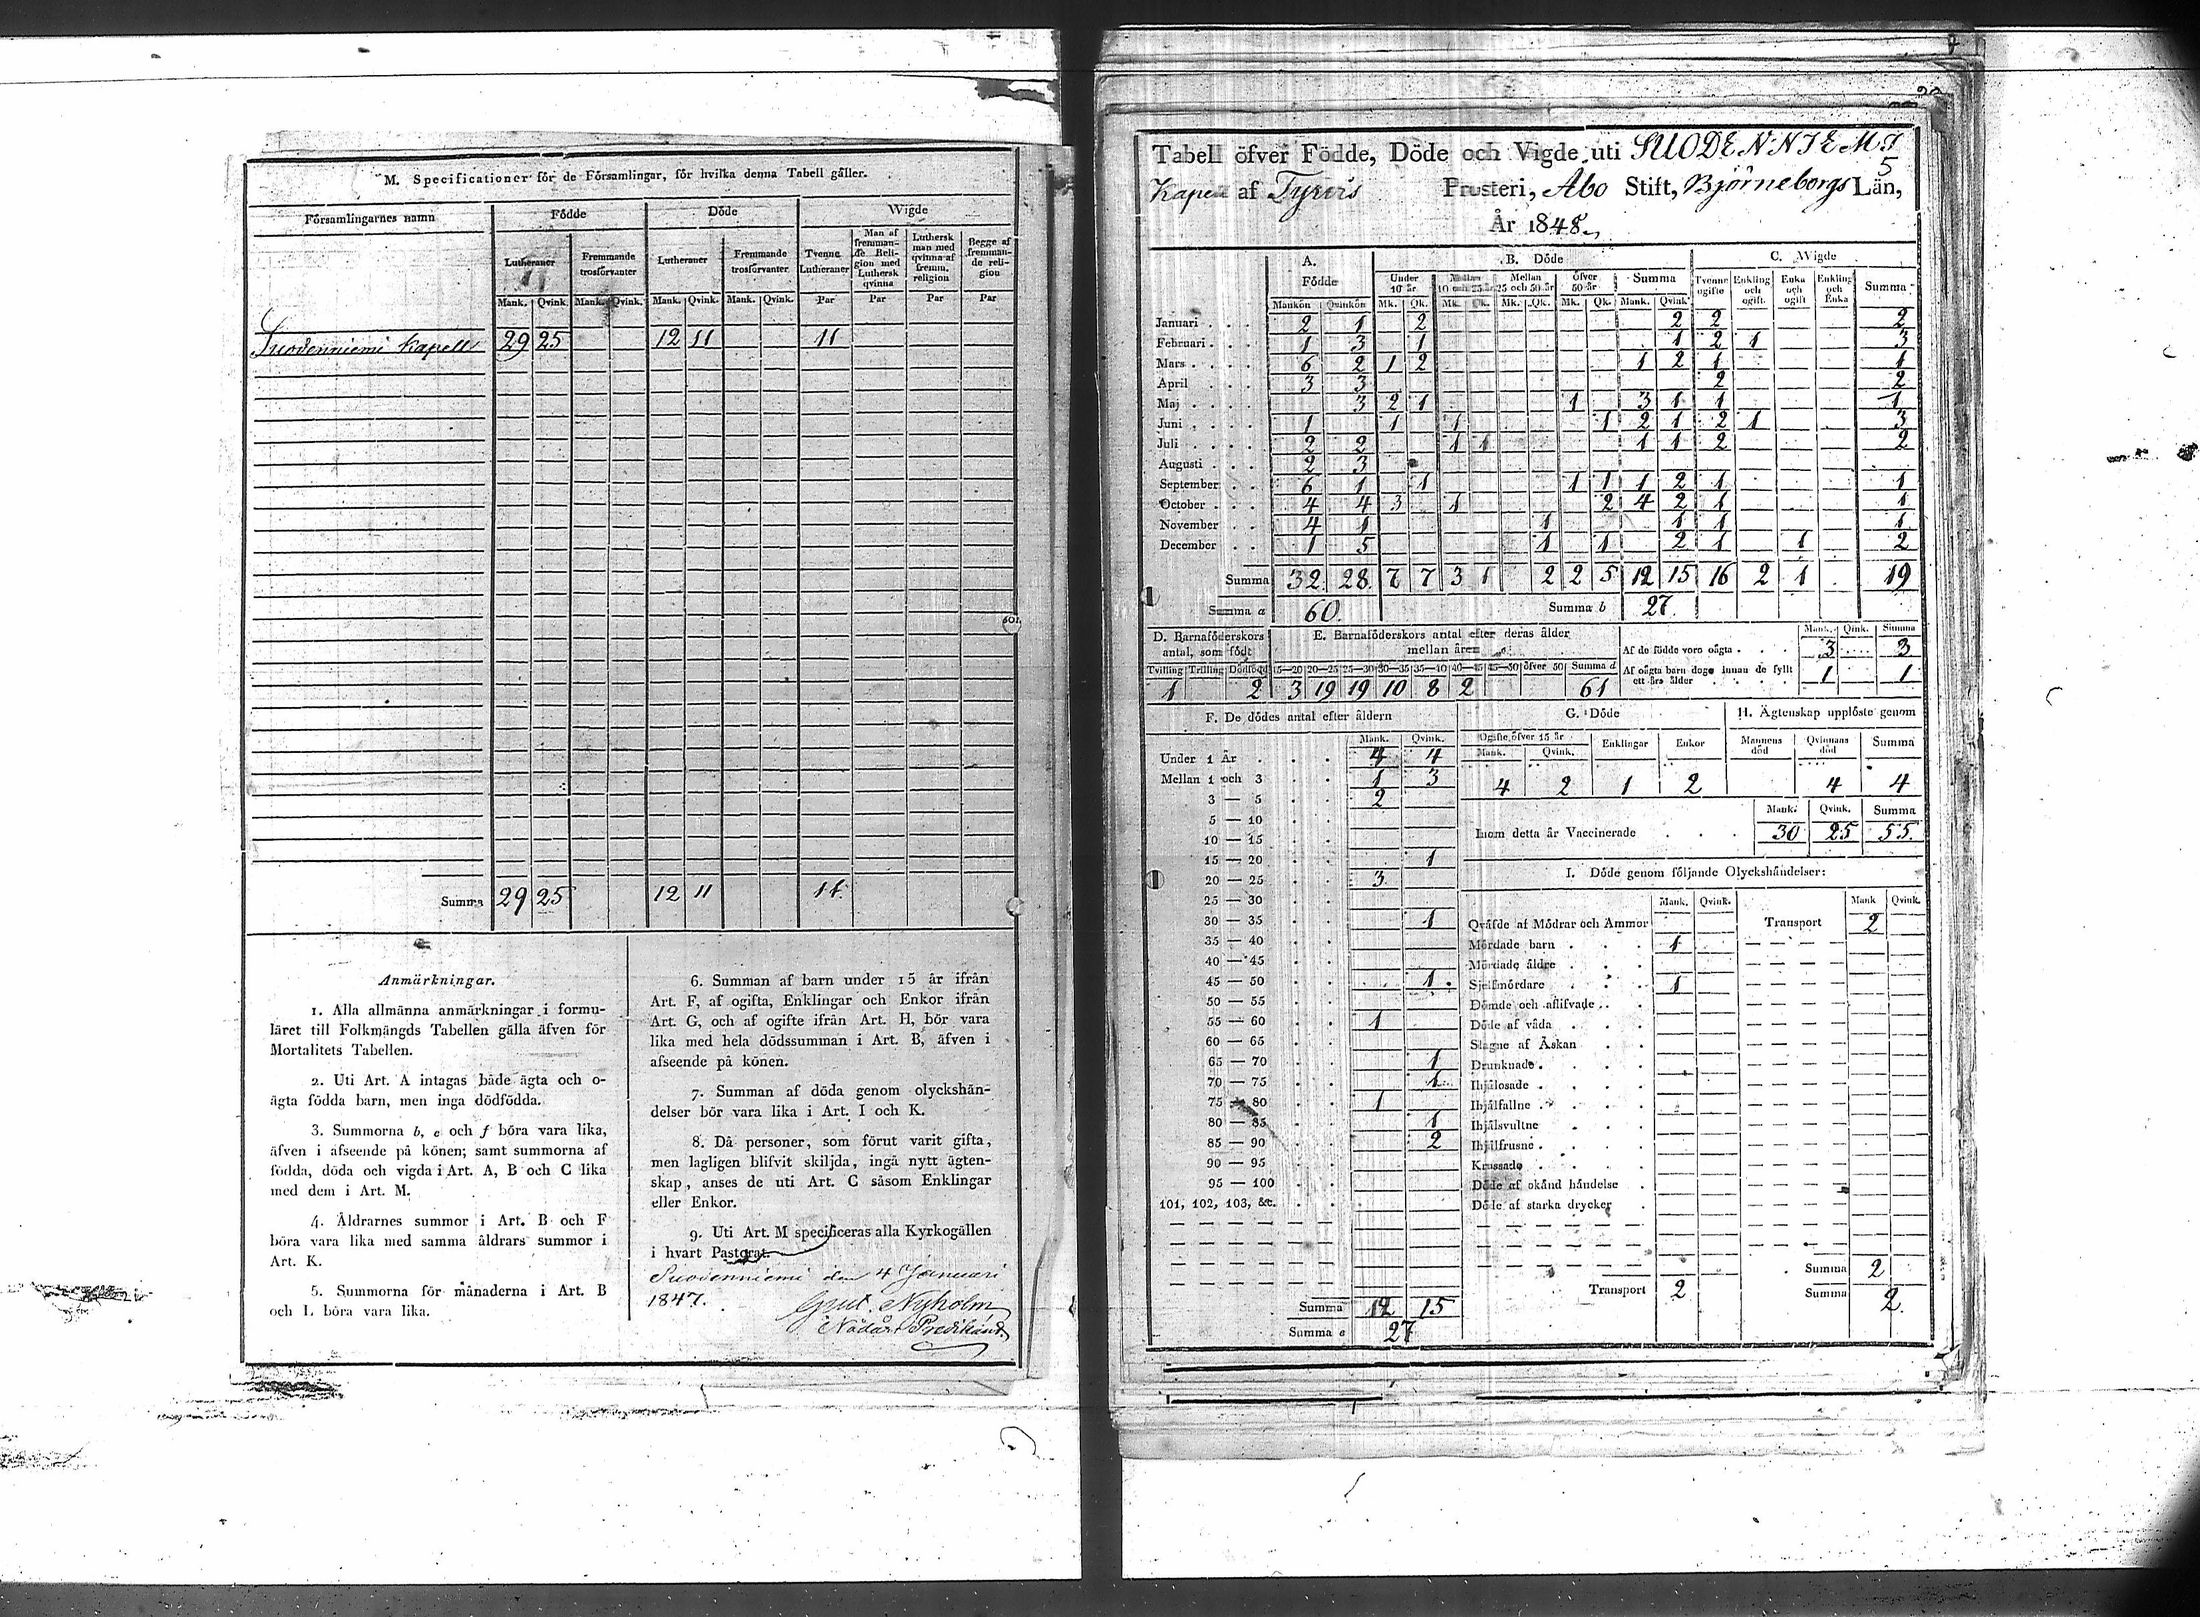 M. Specificationer för de Församlingar, för hvilka denna Tabell gäller.
Församlingarnes namn | Födde | Döde | Wigde
Lutheraner | Fremmande trosförvanter | Lutheraner | Fremmande trosförvanter | Tvenne Lutheraner | Man af fremmande Religion med Luthersk qvinna | Luthersk man med qvinna af fremm. religion | Begge af fremmande religion
Mank. | Qvink. | Mank. | Qvink. | Mank. | Qvink. | Mank. | Qvink. | Par | Par | Par | Par
Suodenniemi Kapell 29 25 12 11 11
Summa 29 25 12 11 11
Anmärkningar.
1. Alla allmänna anmärkningar i formu-
läret till Folkmängds Tabellen gälla äfven för
Mortalitets Tabellen.
2. Uti Art. A intagas både ägta och o-
ägta födda barn, men inga dödfödda.
3. Summorna b, e och f böra vara lika,
äfven i afseende på könen; samt summorna af
födda, döda och vigda i Art. A, B och C lika
med dem i Art. M.
4. Åldrarnes summor i Art. B och F
böra vara lika med samma åldrars summor i
Art. K.
5. Summorna för månaderna i Art. B
och L böra vara lika.
6. Summan af barn under 15 år ifrån
Art. F, af ogifta, Enklingar och Enkor ifrån
Art. G, och af ogifte ifrån Art. H, bör vara
lika med hela dödssumman i Art. B, äfven i
afseende på könen.
7. Summan af döda genom olyckshän-
delser bör vara lika i Art. I och K.
8. Då personer, som förut varit gifta,
men lagligen blifvit skiljda, ingå nytt ägten-
skap, anses de uti Art. C såsom Enklingar
eller Enkor.
9. Uti Art. M specificeras alla Kyrkogällen
i hvart Pastorat.
Suodenniemi den 4 Januari
1847.
Nyholm
601
Tabell öfver Födde, Döde och Vigde uti SUODENNIEMI
5
Kapell af Tyrvis Prosteri, Åbo Stift, Björneborgs Län,
År 1848.
A. Födde | B. Döde | C. Wigde
Under 10 år | Mellan 10 och 25 år | Mellan 25 och 50 år | öfver 50 år | Summa | Tvenne ogifte | Enkling och ogift. | Enka och ogift | Enkling och Enka | Summa
Mankön | Qvinkön | Mk. | Qk. | Mk. | Qk. | Mk. | Qk. | Mk. | Qk. | Mank. | Qvink.
Januari 2 1 2 2 2 2
Februari 1 3 1 1 2 1 3
Mars 6 2 1 2 1 2 1 1
April 3 3 2 2
Maj 3 2 1 1 3 1 1 1
Juni 1 1 1 1 2 1 2 1 3
Juli 2 2 1 1 1 1 2 2
Augusti 2 3
September 6 1 1 1 1 1 2 1 1
October 4 4 3 1 2 4 2 1 1
November 4 1 1 1 1 1
December 1 5 1 1 2 1 1 2
Summa 32 28 7 7 3 1 2 2 5 12 15 16 2 1 19
Summa a 60. Summa b 27.
D. Barnaföderskors antal, som födt
Tvilling | Trilling | Dödfödd
1 2
E. Barnaföderskors antal efter deras ålder mellan åren
15—20 | 20—25 | 25—30 | 30—35 | 35—40 | 40—45 | 45—50 | öfver 50 | Summa d
3 19 19 10 8 2 61
Mank. | Qink. | Summa
Af de födde voro oägta 3 3
Af oägta barn dogo innan de fyllt ett års ålder 1 1
F. De dödes antal efter åldern
Mank. | Qvink.
Under 1 År 4 4
Mellan 1 och 3 1 3
3 — 5 2
5 — 10
10 — 15
15 — 20 1
20 — 25 3
25 — 30
30 — 35 1
35 — 40
40 — 45
45 — 50 1
50 — 55
55 — 60 1
60 — 65
65 — 70 1
70 — 75 1
75 — 80 1
80 — 85 1
85 — 90 2
90 — 95
95 — 100
101, 102, 103, &c.
Summa 12 15
Summa e 27
G. Döde
Ogifte öfver 15 år | Enklingar | Enkor
Mank. | Qvink.
4 2 1 2
H. Ägtenskap upplöste genom
Mannens död | Qvinnans död | Summa
4 4
Mank. | Qvink. | Summa
Inom detta år Vaccinerade 30 25 55.
I. Döde genom följande Olyckshändelser:
Mank. | Qvink. | Mank | Qvink.
Qväfde af Mödrar och Ammor Transport 2
Mördade barn 1
Mördade äldre
Sjelfmördare 1
Dömde och aflifvade
Döde af våda
Slagne af Åskan
Drunknade
Ihjälosade
Ihjälfallne
Ihjälsvultne
Ihjälfrusne
Krossade
Döde af okänd händelse
Döde af starka drycker
Summa 2
Transport 2 Summa 2.